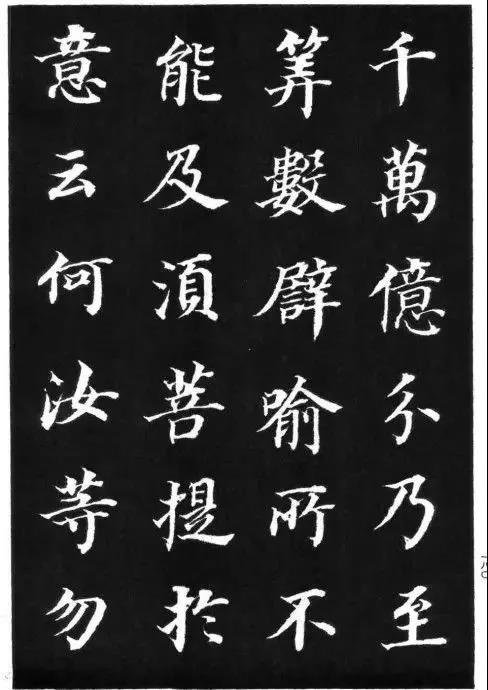 千萬億分乃至
筭數譬喻所不
能及須菩提於
意云何汝等勿